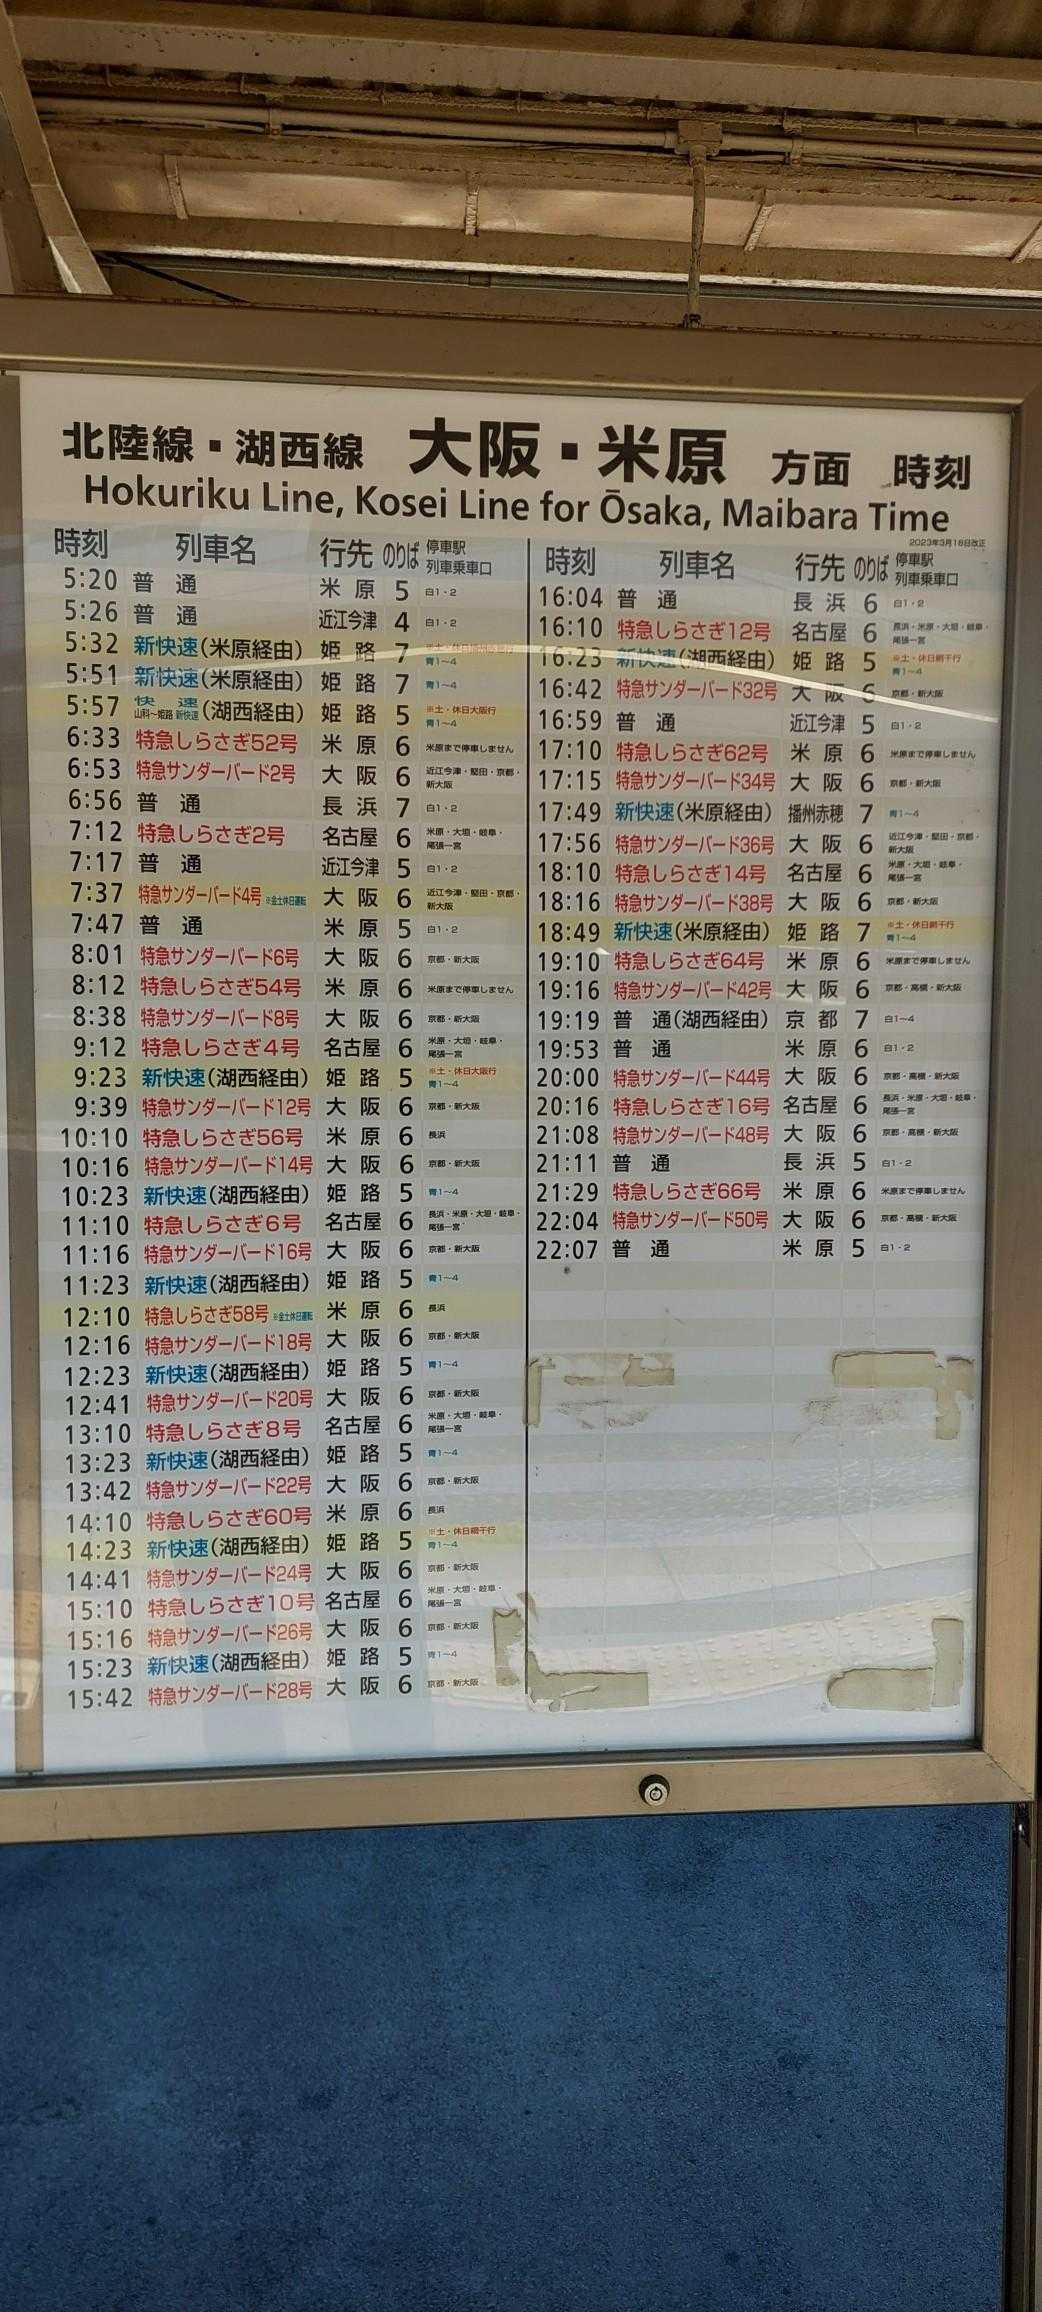 北陸線・湖西線 大阪・米原 方面 時刻
Hokuriku Line, Kosei Line for Ōsaka, Maibara Time
2023年3月18日改正
時刻 列車名 行先 のりば 停車駅 列車乗車口
5:20 普通 米原 5 白1・2
5:26 普通 近江今津 4 白1・2
5:32 新快速(米原経由) 姫路 7 青1〜4
5:51 新快速(米原経由) 姫路 7 青1〜4
5:57 快速 山科〜姫路 新快速 (湖西経由) 姫路 5 ※土・休日大阪行 青1〜4
6:33 特急しらさぎ52号 米原 6 米原まで停車しません
6:53 特急サンダーバード2号 大阪 6 近江今津・堅田・京都・新大阪
6:56 普通 長浜 7 白1・2
7:12 特急しらさぎ2号 名古屋 6 米原・大垣・岐阜・尾張一宮
7:17 普通 近江今津 5 白1・2
7:37 特急サンダーバード4号 ※金土休日運転 大阪 6 近江今津・堅田・京都・新大阪
7:47 普通 米原 5 白1・2
8:01 特急サンダーバード6号 大阪 6 京都・新大阪
8:12 特急しらさぎ54号 米原 6 米原まで停車しません
8:38 特急サンダーバード8号 大阪 6 京都・新大阪
9:12 特急しらさぎ4号 名古屋 6 米原・大垣・岐阜・尾張一宮
9:23 新快速(湖西経由) 姫路 5 ※土・休日大阪行 青1〜4
9:39 特急サンダーバード12号 大阪 6 京都・新大阪
10:10 特急しらさぎ56号 米原 6 長浜
10:16 特急サンダーバード14号 大阪 6 京都・新大阪
10:23 新快速(湖西経由) 姫路 5 青1〜4
11:10 特急しらさぎ6号 名古屋 6 長浜・米原・大垣・岐阜・尾張一宮
11:16 特急サンダーバード16号 大阪 6 京都・新大阪
11:23 新快速(湖西経由) 姫路 5 青1〜4
12:10 特急しらさぎ58号 ※金土休日運転 米原 6 長浜
12:16 特急サンダーバード18号 大阪 6 京都・新大阪
12:23 新快速(湖西経由) 姫路 5 青1〜4
12:41 特急サンダーバード20号 大阪 6 京都・新大阪
13:10 特急しらさぎ8号 名古屋 6 米原・大垣・岐阜・尾張一宮
13:23 新快速(湖西経由) 姫路 5 青1〜4
13:42 特急サンダーバード22号 大阪 6 京都・新大阪
14:10 特急しらさぎ60号 米原 6 長浜
14:23 新快速(湖西経由) 姫路 5 ※土・休日網干行 青1〜4
14:41 特急サンダーバード24号 大阪 6 京都・新大阪
15:10 特急しらさぎ10号 名古屋 6 米原・大垣・岐阜・尾張一宮
15:16 特急サンダーバード26号 大阪 6 京都・新大阪
15:23 新快速(湖西経由) 姫路 5 青1〜4
15:42 特急サンダーバード28号 大阪 6 京都・新大阪
時刻 列車名 行先 のりば 停車駅 列車乗車口
16:04 普通 長浜 6 白1・2
16:10 特急しらさぎ12号 名古屋 6 長浜・米原・大垣・岐阜・尾張一宮
16:23 新快速(湖西経由) 姫路 5 ※土・休日網干行 青1〜4
16:42 特急サンダーバード32号 大阪 6 京都・新大阪
16:59 普通 近江今津 5 白1・2
17:10 特急しらさぎ62号 米原 6 米原まで停車しません
17:15 特急サンダーバード34号 大阪 6 京都・新大阪
17:49 新快速(米原経由) 播州赤穂 7 青1〜4
17:56 特急サンダーバード36号 大阪 6 近江今津・堅田・京都・新大阪
18:10 特急しらさぎ14号 名古屋 6 米原・大垣・岐阜・尾張一宮
18:16 特急サンダーバード38号 大阪 6 京都・新大阪
18:49 新快速(米原経由) 姫路 7 ※土・休日網干行 青1〜4
19:10 特急しらさぎ64号 米原 6 米原まで停車しません
19:16 特急サンダーバード42号 大阪 6 京都・高槻・新大阪
19:19 普通(湖西経由) 京都 7 白1〜4
19:53 普通 米原 6 白1・2
20:00 特急サンダーバード44号 大阪 6 京都・高槻・新大阪
20:16 特急しらさぎ16号 名古屋 6 長浜・米原・大垣・岐阜・尾張一宮
21:08 特急サンダーバード48号 大阪 6 京都・高槻・新大阪
21:11 普通 長浜 5 白1・2
21:29 特急しらさぎ66号 米原 6 米原まで停車しません
22:04 特急サンダーバード50号 大阪 6 京都・高槻・新大阪
22:07 普通 米原 5 白1・2